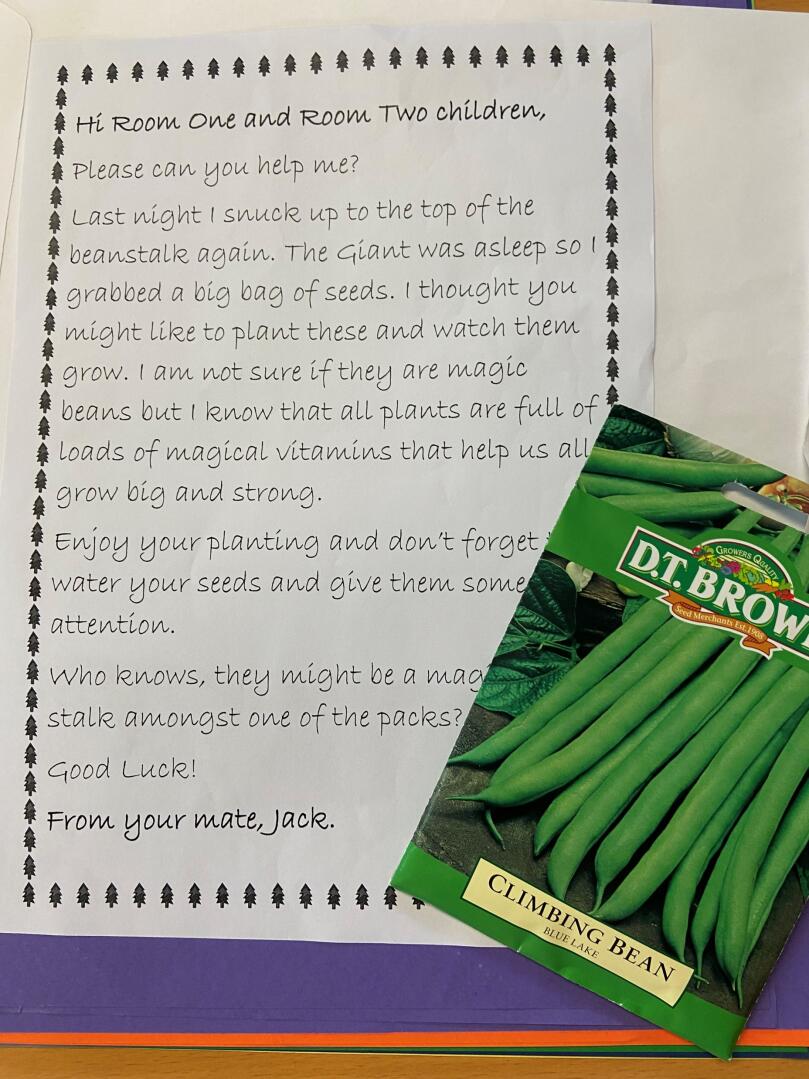 Hi Room One and Room Two children,
Please can you help me?
Last night I snuck up to the top of the
beanstalk again. The Giant was asleep so I
grabbed a big bag of seeds. I thought you
might like to plant these and watch them
grow. I am not sure if they are magic
beans but I know that all plants are full of
loads of magical vitamins that help us all
grow big and strong.
Enjoy your planting and don't forget
water your seeds and give them some
attention.
Who knows, they might be a
stalk amongst one of the packs?
Good Luck!
From your mate, Jack.
GROWERS QUALITY
D.T. BROW
Seed Merchants Est. 1908
CLIMBING BEAN
BLUE LAKE